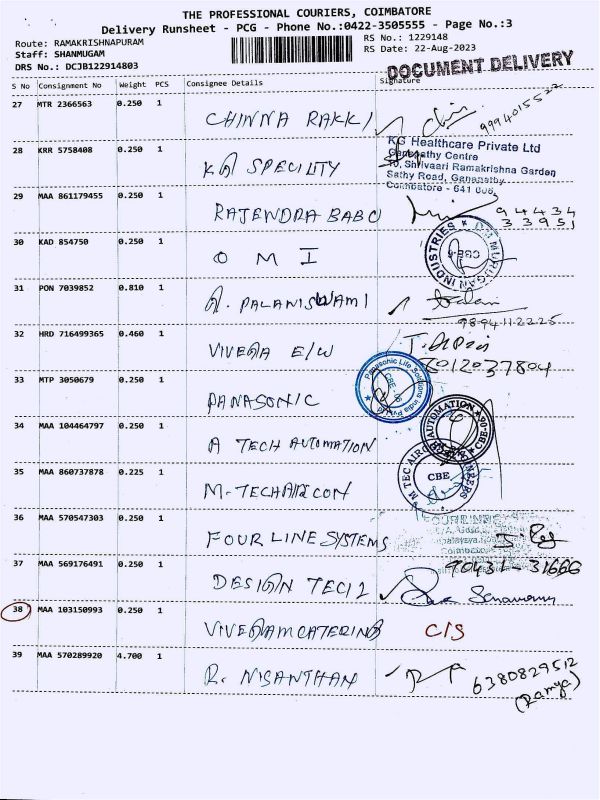 THE PROFESSIONAL COURIERS, COIMBATORE
Delivery Runsheet - PCG - Phone No.:0422-3505555 - Page No.:3
Route: RAMAKRISHNAPURAM
RS No.: 1229148
Staff: SHANMUGAM
RS Date: 22-Aug-2023
DRS No.: DCJB122914803
DOCUMENT DELIVERY
S No Consignment No Weight PCS Consignee Details Signature
27 MTR 2366563 0.250 1 CHINNA RAKKI 9994015522
28 KRR 5758408 0.250 1 KG SPECILITY
KG Healthcare Private Ltd
Ganapathy Centre
10, Shrivaari Ramakrishna Garden
Sathy Road, Ganapathy
Coimbatore - 641 006.
29 MAA 861179455 0.250 1 RAJENDRA BABU 94434
33951
30 KAD 854750 0.250 1 O M I
MURUGAN INDUSTRIES
CBE-6
31 PON 7039852 0.810 1 A. PALANISWAMI
9894112225
32 HRD 716499365 0.460 1 VIVEGA E/W
8012037804
33 MTP 3050679 0.250 1 PANASONIC
Panasonic Life Solutions India Pvt Ltd
CBE - 06
34 MAA 104464797 0.250 1 A TECH AUTOMATION
AUTOMATION
CBE-06
35 MAA 860737878 0.225 1 M-TECH AIRCON
M TEC AIRCON ENGINEERS
CBE.
36 MAA 570547303 0.250 1 FOUR LINE SYSTEMS
FOUR LINE
Coimbatore
37 MAA 569176491 0.250 1 DESIGN TECH 90431-31666
38 MAA 103150993 0.250 1 VIVEGAM CATERING C/S
39 MAA 570289920 4.700 1 R. NISANTHAN 6380829512
(Ramya)